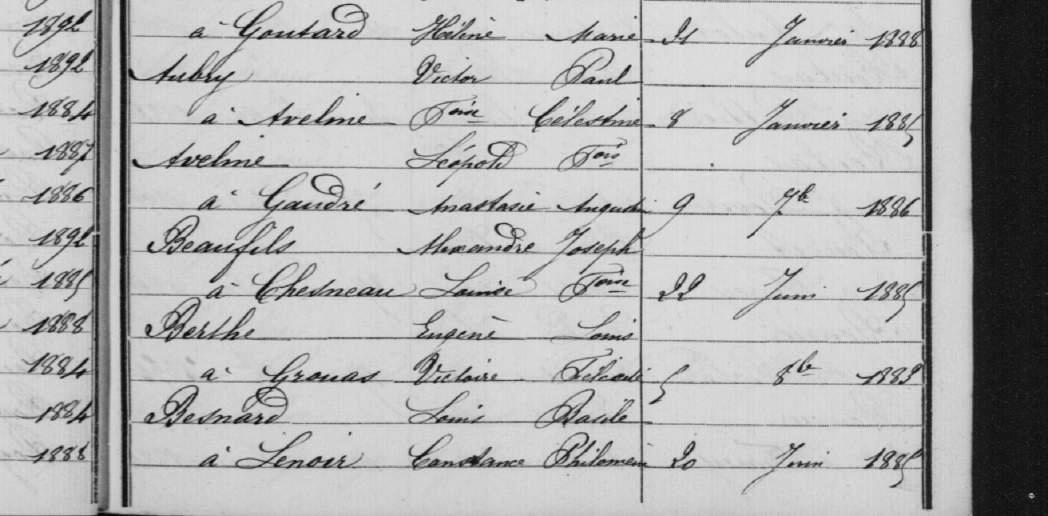 1892 à Goutard Hélène Marie 21 Janvier 1888
1892 Aubry Victor Paul
1884 à Aveline Foise Célestine 8 Janvier 1885
1887 Aveline Léopold Fois
1886 à Gaudré Anastasie Augusti 9 7b 1886
1892 Beaufils Alexandre Joseph
1885 à Chesneau Louise Foise 22 Juin 1885
1888 Berthe Eugène Louis
1884 à Grouas Victoire Félicité 5 8b 1883
1884 Besnard Louis Basile
1888 à Lenoir Constance Philomèn 20 Juin 1885